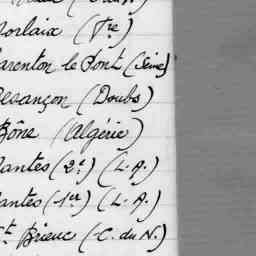 orlaix (Fre)
arenton le Pont (Seine)
Besançon (Doubs)
Bône (Algérie)
Nantes (2e) (L. A.)
antes (1er) (L. A.)
St Brieuc (C. du N.)